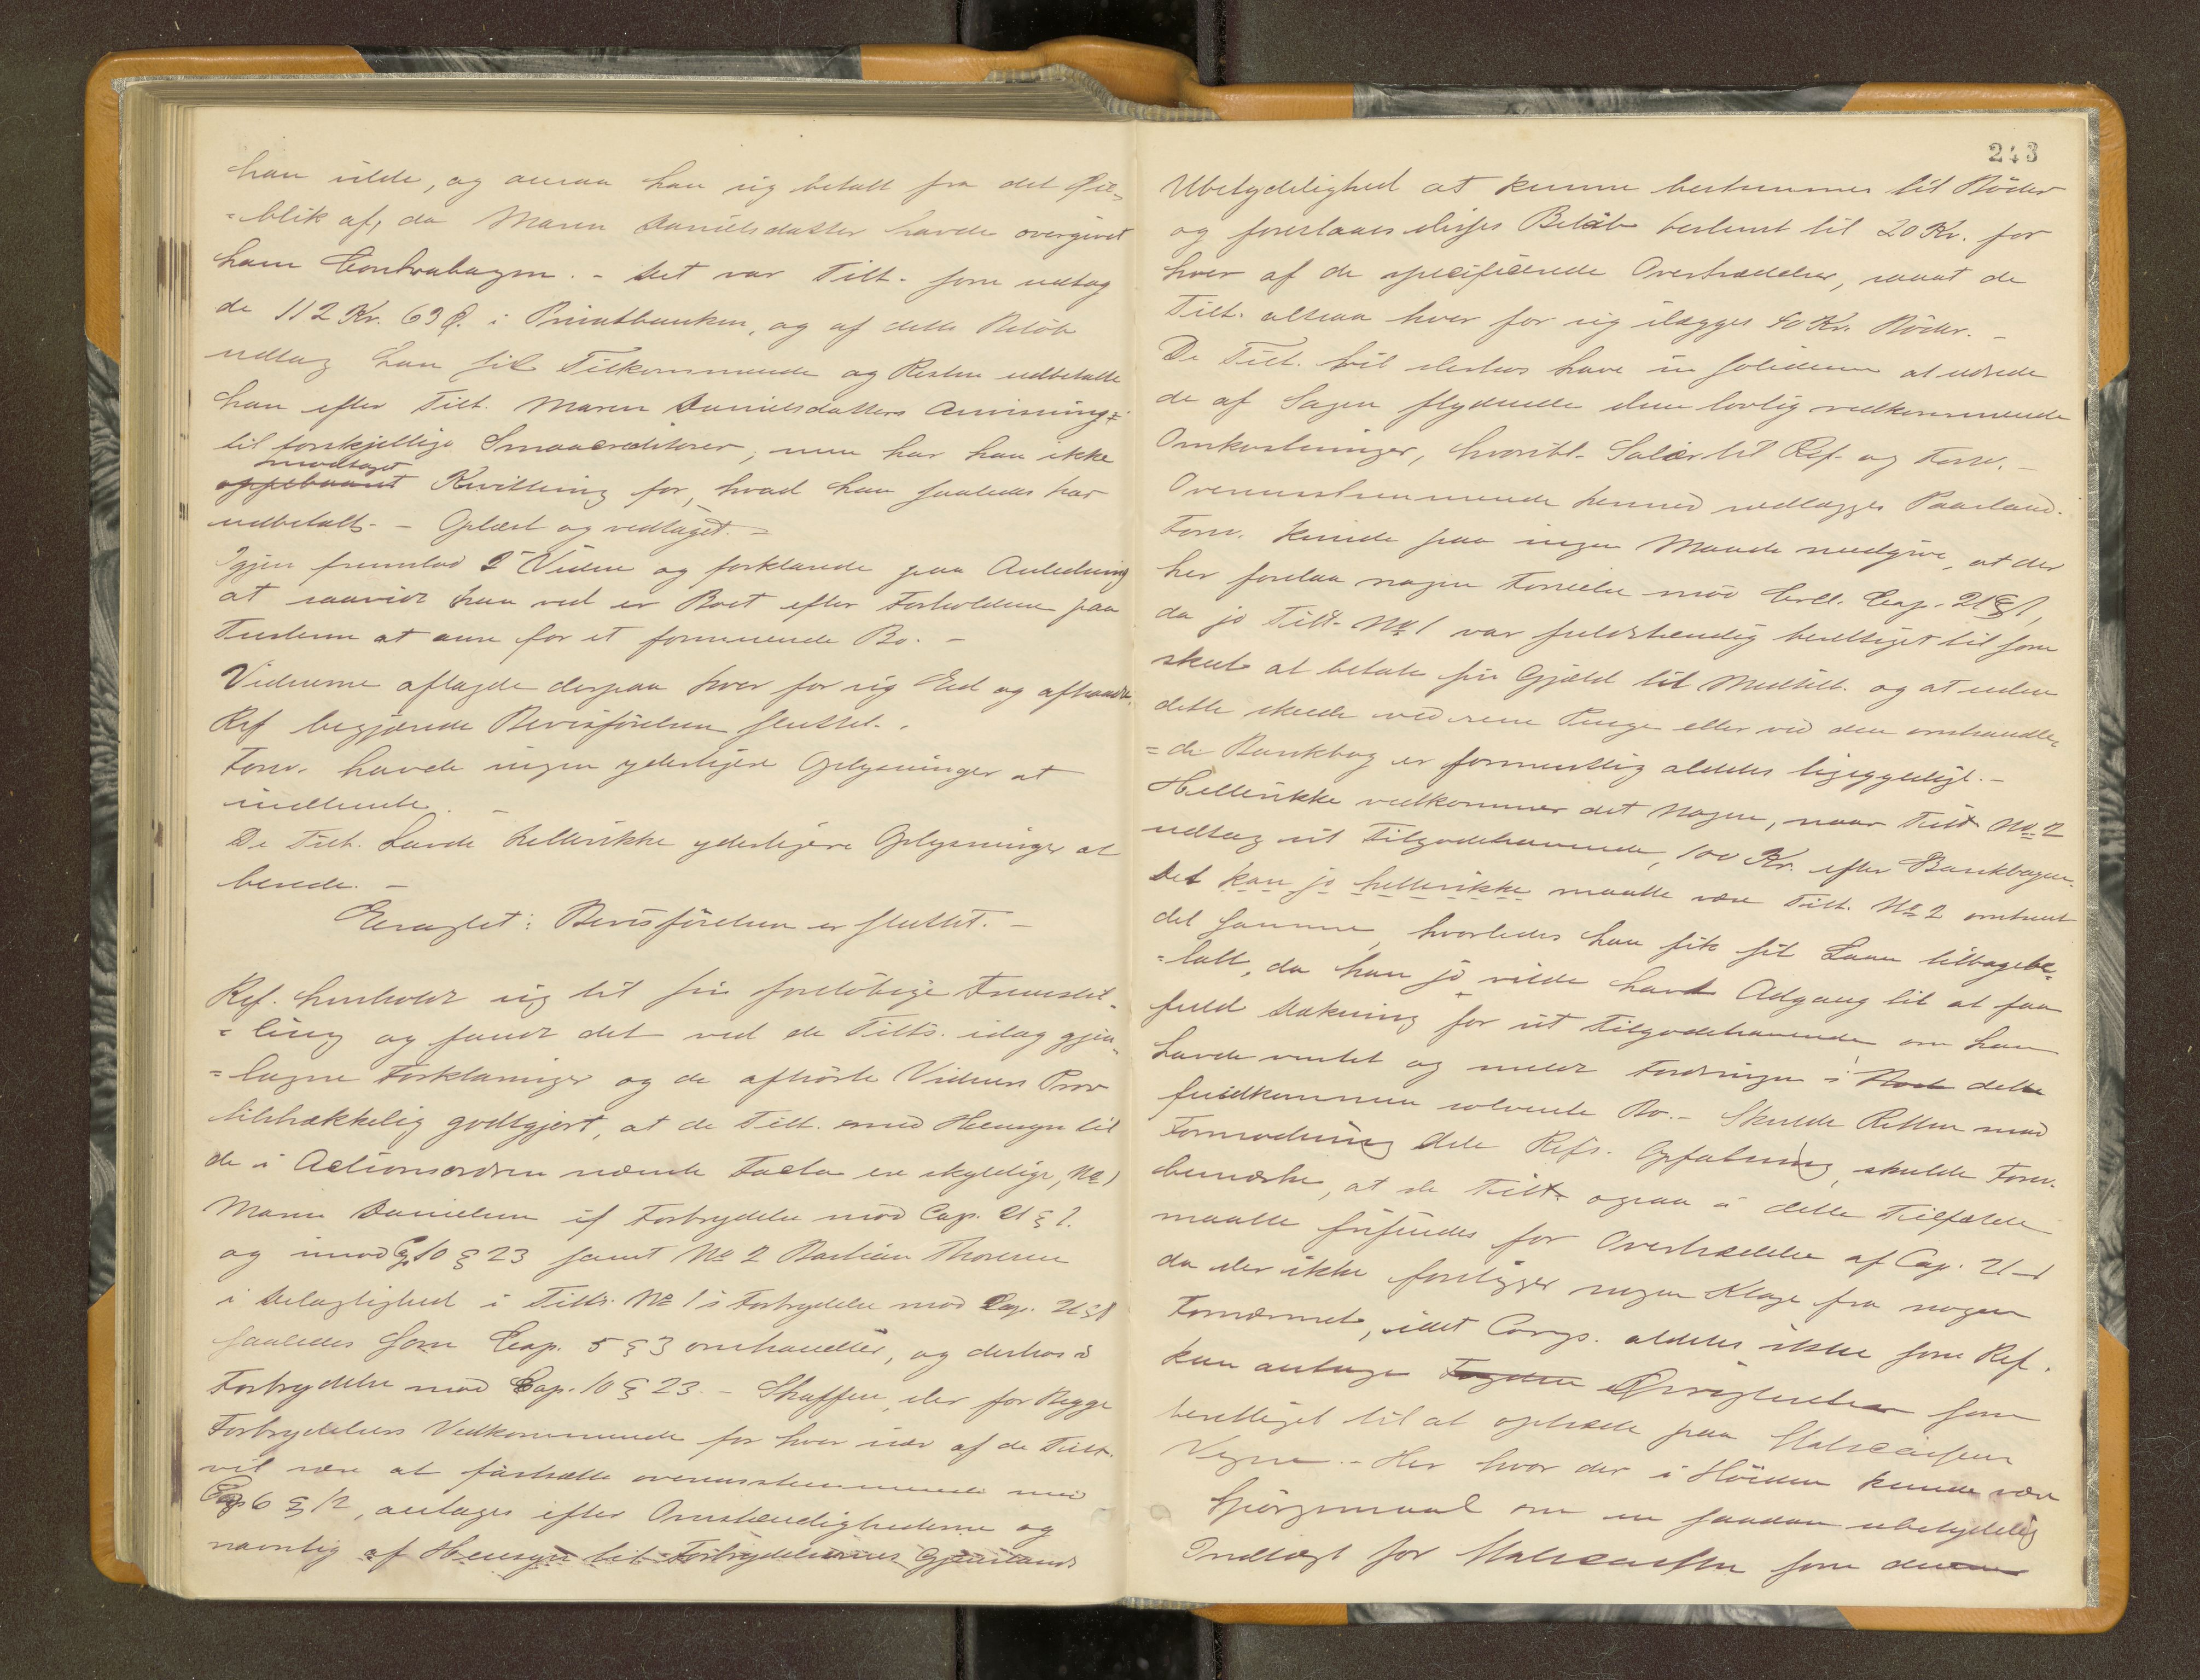 han vilde, og ansaa han sig betalt fra det Öie-
=blik af, da Maren Danielsdatter havde overgivet
ham Contrabogen. - Det var Tilt. som udtog
de 112 Kr. 69 Ø. i Privatbanken, og af dette Beløb
udtog han sit Tilkommende og Resten udbetalte
han efter Tilt. Maren Danielsdatters Anvisning
til forskjellige Smaacreditorer, men har han ikke
modtaget
oppebaaret Kvittering for, hvad han saaledes har
udbetalt. - Oplæst og vedtaget. -
Igjen fremstod 2 Vidne og forklarede paa Anledning
at saavidt han ved er Boet efter Forholdene paa
Tusteren at anse for et formuende Bo. -
Vidnerne aflagde derpaa hver for sig Ed og aftraadte.
Ref. begjærede Bevisførelsen sluttet. -
Forsv. havde ingen yderligere Oplysninger at
indhente. -
De Tilt. havde hellerikke yderligere Oplysninger at
berede. -
Eragtet: Bevisførelsen er sluttet. -
Ref. henholdt sig til sin foreløbige Fremstil-
=ling og fandt det ved de Tilts. idag gjen-
=tagne Forklaringer og de afhørte Vidners Prov
tilstrækkelig godtgjort, at de Tilt. med Hensyn til
de i Actionsordren nævnte Facta er skyldige, No 1
Maren Danielsen if Forbrydelse mod Cap. 21 § 1.
og imod Cap 10 § 23 samt No 2 Bastian Thoresen
i Delagtighed i Tilts. No 1's Forbrydelse mod Cap. 21 § 1
saaledes som Cap. 5 § 3 omhandler, og derhos i
Forbrydelse mod Cap. 10 § 23. - Straffen, der for Begge
Forbrydelsers Vedkommende for hver især af de Tilt.
vil være at fastsætte overensstemmende med
Cap 6 § 12, antages efter Omstændighederne og
navnlig af Hensyn til Forbrydelsernes Gjenstands
243
Ubetydelighed at kunne bestemmes til Bøder
og foreslaaes disses Beløb bestemt til 20 Kr. for
hver af de specificerede Overtrædelser, saaat de
Tilt. altsaa hver for sig ilægges 40 Kr. Bøder. -
De Tilt. vil derhos have in solidum at udrede
de af Sagen flydende dem lovlig vedkommende
Omkostninger, hvoribl. Salær til Ref. og Forsv. -
Overensstemmende hermed nedlægges Paastand.
Forsv. kunde paa ingen Maade medgive, at der
her forelaa nogen Forseelse mod Crl. Cap. 21 § 1,
da jo Tilt. No 1 var fuldstændig berettiget til som
skeet at betale sin Gjæld til Medtilt. og at enten
dette skede ved rene Penge eller ved den omhandle-
=de Bankbog er formentlig aldeles ligegyldigt. -
Hellerikke vedkommer det Nogen, naar Tilt No 2
udtog sit Tilgodehavende, 100 Kr. efter Bankbogen.
Det kan jo hellerikke maatte være Tilt. No 2 omtrent
det samme, hvorledes han fik sit Laan tilbagebe-
=talt, da han jo vilde havt Adgang til at faa
fuld Dækning for sit Tilgodehavende, om han
havde ventet og meldt Fordringen i dette
fuldkommen solvente Bo. - Skulde Retten mod
Formodning dele Refs. Opfatning, skulde Forsv.
bemærke, at de Tilt. ogsaa i dette Tilfælde
maatte frifindes for Overtrædelse af Cap. 21-1
da der ikke foreligger nogen Klage fra nogen
Fornærmet, idet Corps. aldeles ikke som Ref.
kan antage Fogden Øvrigheden som
berettiget til at optræde paa Statscassens
Vegne. - Her hvor der i Høiden kunde være
Spørgsmaal om en saadan ubetydelig
Indtægt for Statscassen som denne